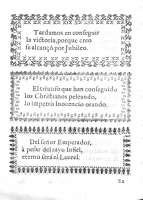 Tardamos en conseguir
la victoria, porque creo
se alcançò por Jubileo.
El triunfo que han conseguido
los Christianos peleando,
lo impetra Inocencio orando.
Del señor Emperador,
à pesar del rayo Infiel,
eterno serà el Laurel.